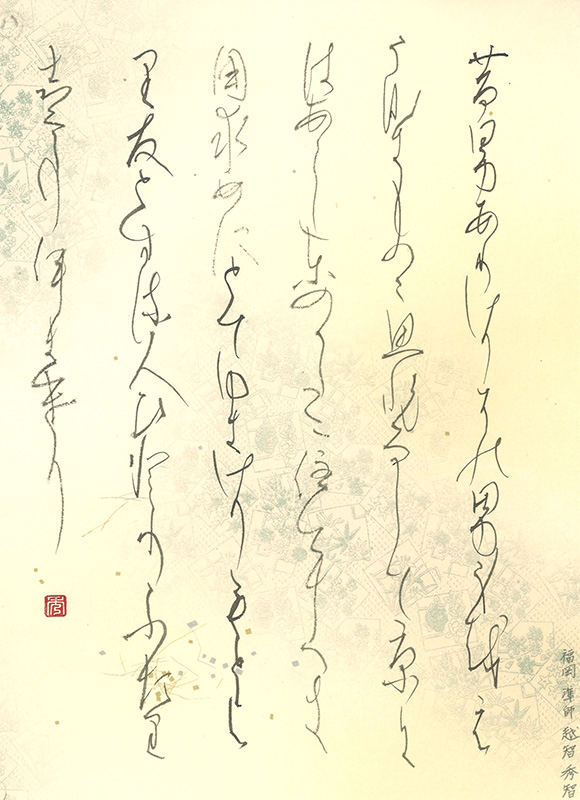 昔男ありけりその男身越え
うなきものに思ひなして京に
はあらし東のかたに住むへき
国求めにとてゆきけりもとよ
り友とする人ひとりふたり
していきけり
福岡 準師 越智秀智